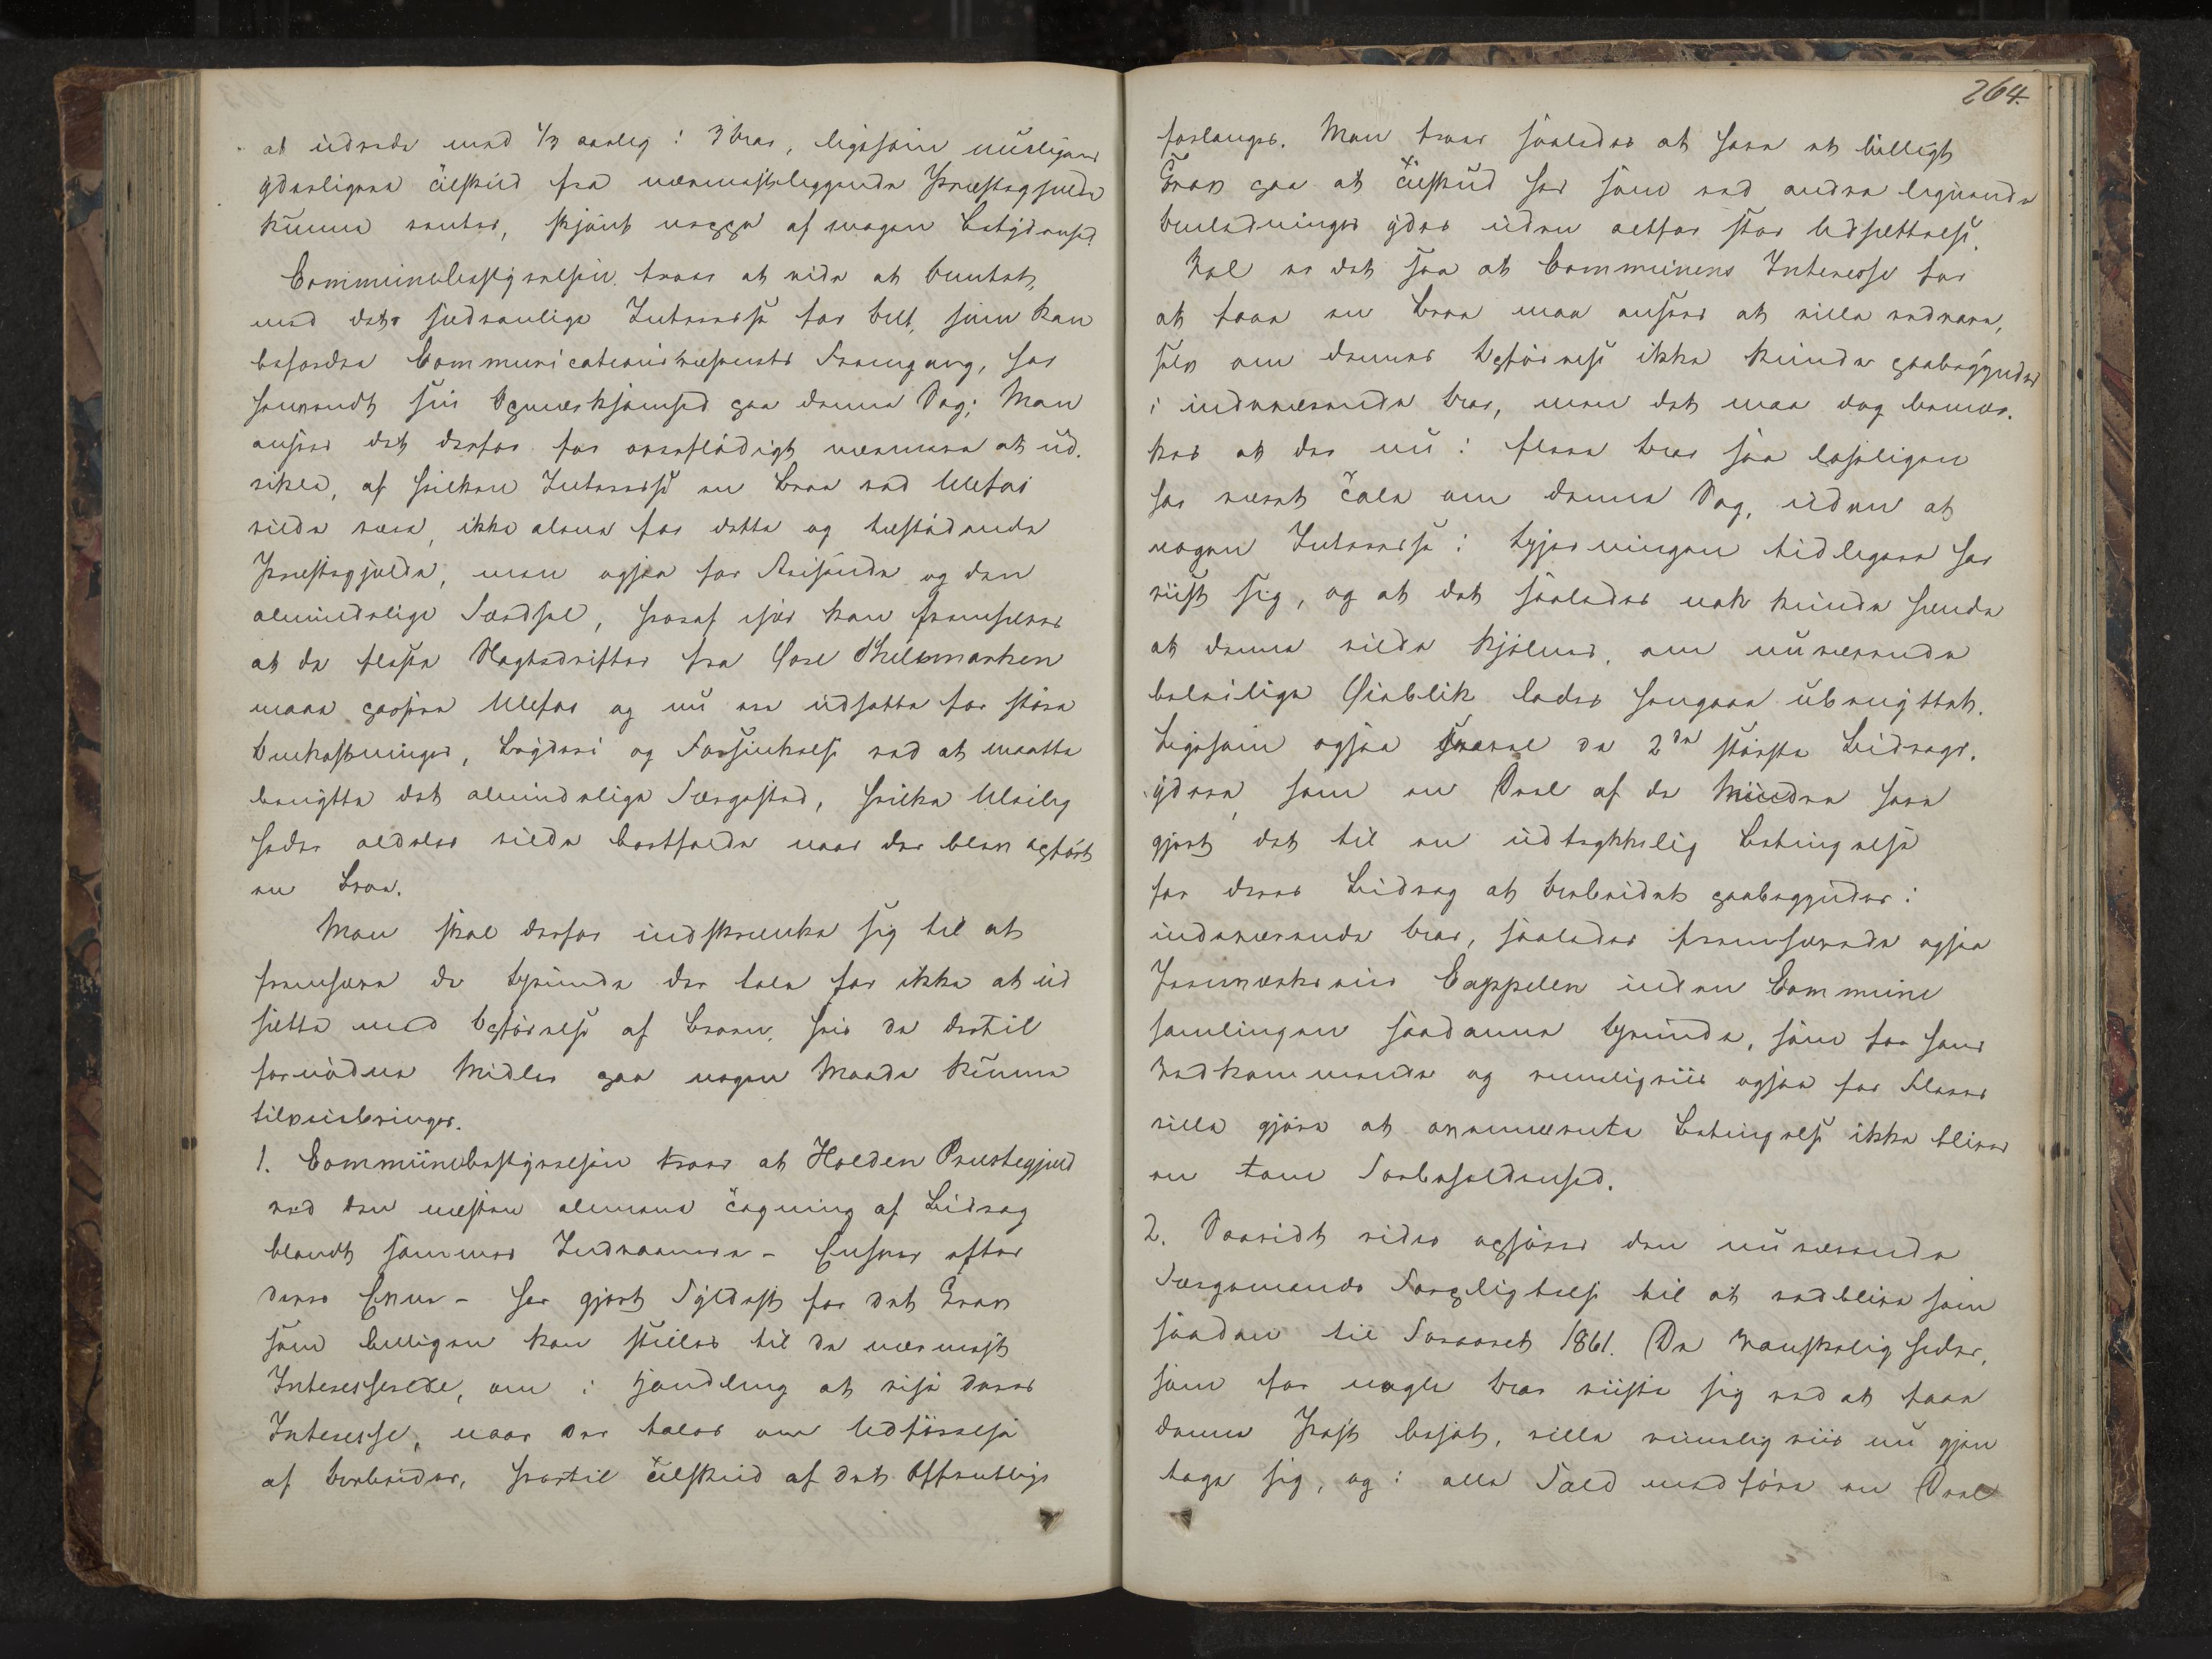 at udrede med 1/3 aarlig i 3 Aar, ligesom muligens
yderligere Tilskud fra nærmestliggende Præstegjelde
kunne ventes, skjønt neppe af megen Betydenhed.
Communebestyrelsen troer at vide at Amtet,
med dets sædvanlige Interesse for Alt, som kan
befordre Communicationsvæsenets Fremgang, har
henvendt sin Opmærksomhed paa denne Sag; Man
anseer det derfor for overflødigt nærmere at ud-
vikle, af hvilken Interesse en Broe ved Ulefos
vilde være, ikke alene for dette og tilstødende
Præstegjelde, men ogsaa for Reisende og den
almindelige Færdsel, hvoraf især kan fremhæves
at de fleste Slagtedrifter fra Øvre Thelemarken
maae passere Ulefos og nu ere udsatte for store
Omkostninger, Bryderi og Forsinkelse ved at maatte
benytte det almindelige Færgested, hvilke Uleilig
heder aldeles vilde bortfalde naar der blev opført
en Broe.
Man skal derfor indskrænke sig til at
fremhæve de Grunde der tale for ikke at ud
sætte med Opførelse af Broen, hvis de dertil
fornødne Midler paa nogen Maade kunne
tilveiebringes.
1. Communebestyrelsen troer at Holden Præstegjeld
ved den næsten almene Tegning af Bidrag
blandt sammes Indvaanere – Enhver efter
deres Evne – har gjort Fyldest for det Krav
som billigen kan stilles til de nærmest
Interesserede, om i Handling at vise deres
Interesse, naar der tales om Udførelse
af Arbeider, hvortil Tilskud af det Offentlige
264.
forlanges. Man troer saaledes at have et billigt
Krav paa at Tilskud her som ved andre lignende
Anledninger ydes uden altfor stor Udsættelse.
Vel er det saa at Communens Interesse for
at faae en Broe maa ansees at ville vedvare,
selv om dennes Opførelse ikke kunde paabegyndes
i indeværende Aar, men det maa dog bemær-
kes at der nu i flere Aar saa leiligen
har været Tale om denne Sag, uden at
nogen Interesse i Gjerningen tidligere har
viist sig, og at det saaledes nok kunde hænde
at denne vilde kjølnes, om nuværende
beleilige Øieblik lades hengaae ubenyttet.
Ligesom ogsaa svævel de 2de største Bidrags-
ydere, som en Deel af de Mindre have
gjort det til en udtrykkelig Betingelse
for deres Bidrag at Arbeidet paabegyndes i
indeværende Aar, saaledes fremhævede ogsaa
Jernværkseier Cappelen inden Commune
samlingen saadanne Grunde, som for hans
Vedkommende og rimeligviis ogsaa for Fleres
ville gjøre at ovennævnte Betingelse ikke bliver
en tom Forbeholdenhed.
2. Saavidt vides ophører den nuværende
Færgemands Forpligtelse til at vedblive som
saadan til Foraaret 1861. De Vanskeligheder,
som for nogle Aar viiste sig ved at faae
denne Post besat, ville rimeligviis nu gjen
tage sig, og i alle Fald medføre en Deel